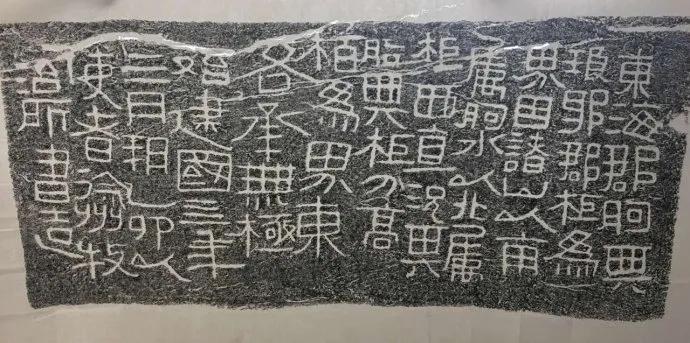 東海郡朐與
琅邪郡柜為
界因諸山以南
屬朐水以北屬
柜西直況其
朐與柜分高
伯為界東
各承無極
始建國四年
三月朔乙卯以
使者徐州牧
治所書造